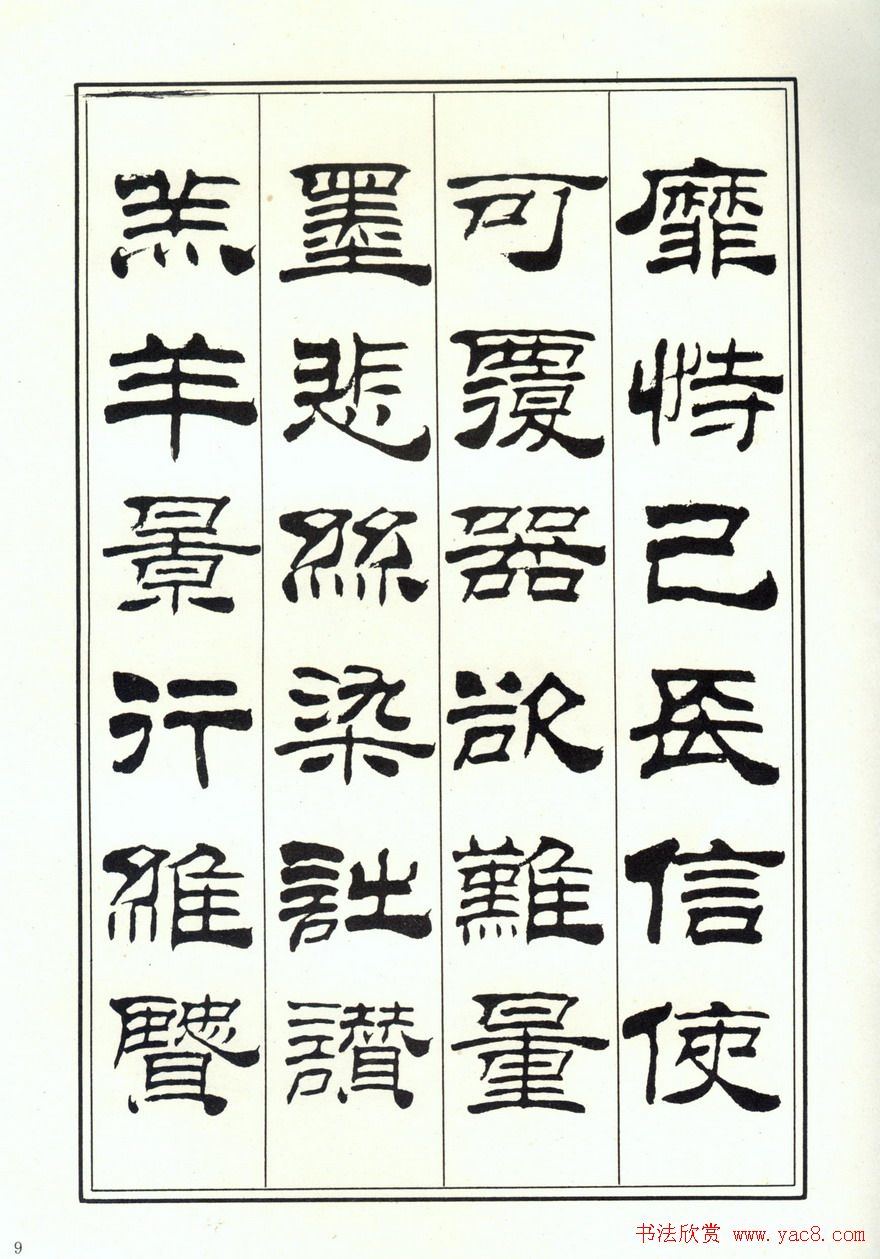 靡恃己長信使
可覆器欲難量
墨悲絲染詩讚
羔羊景行維賢
9
书法欣赏 www.yac8.com